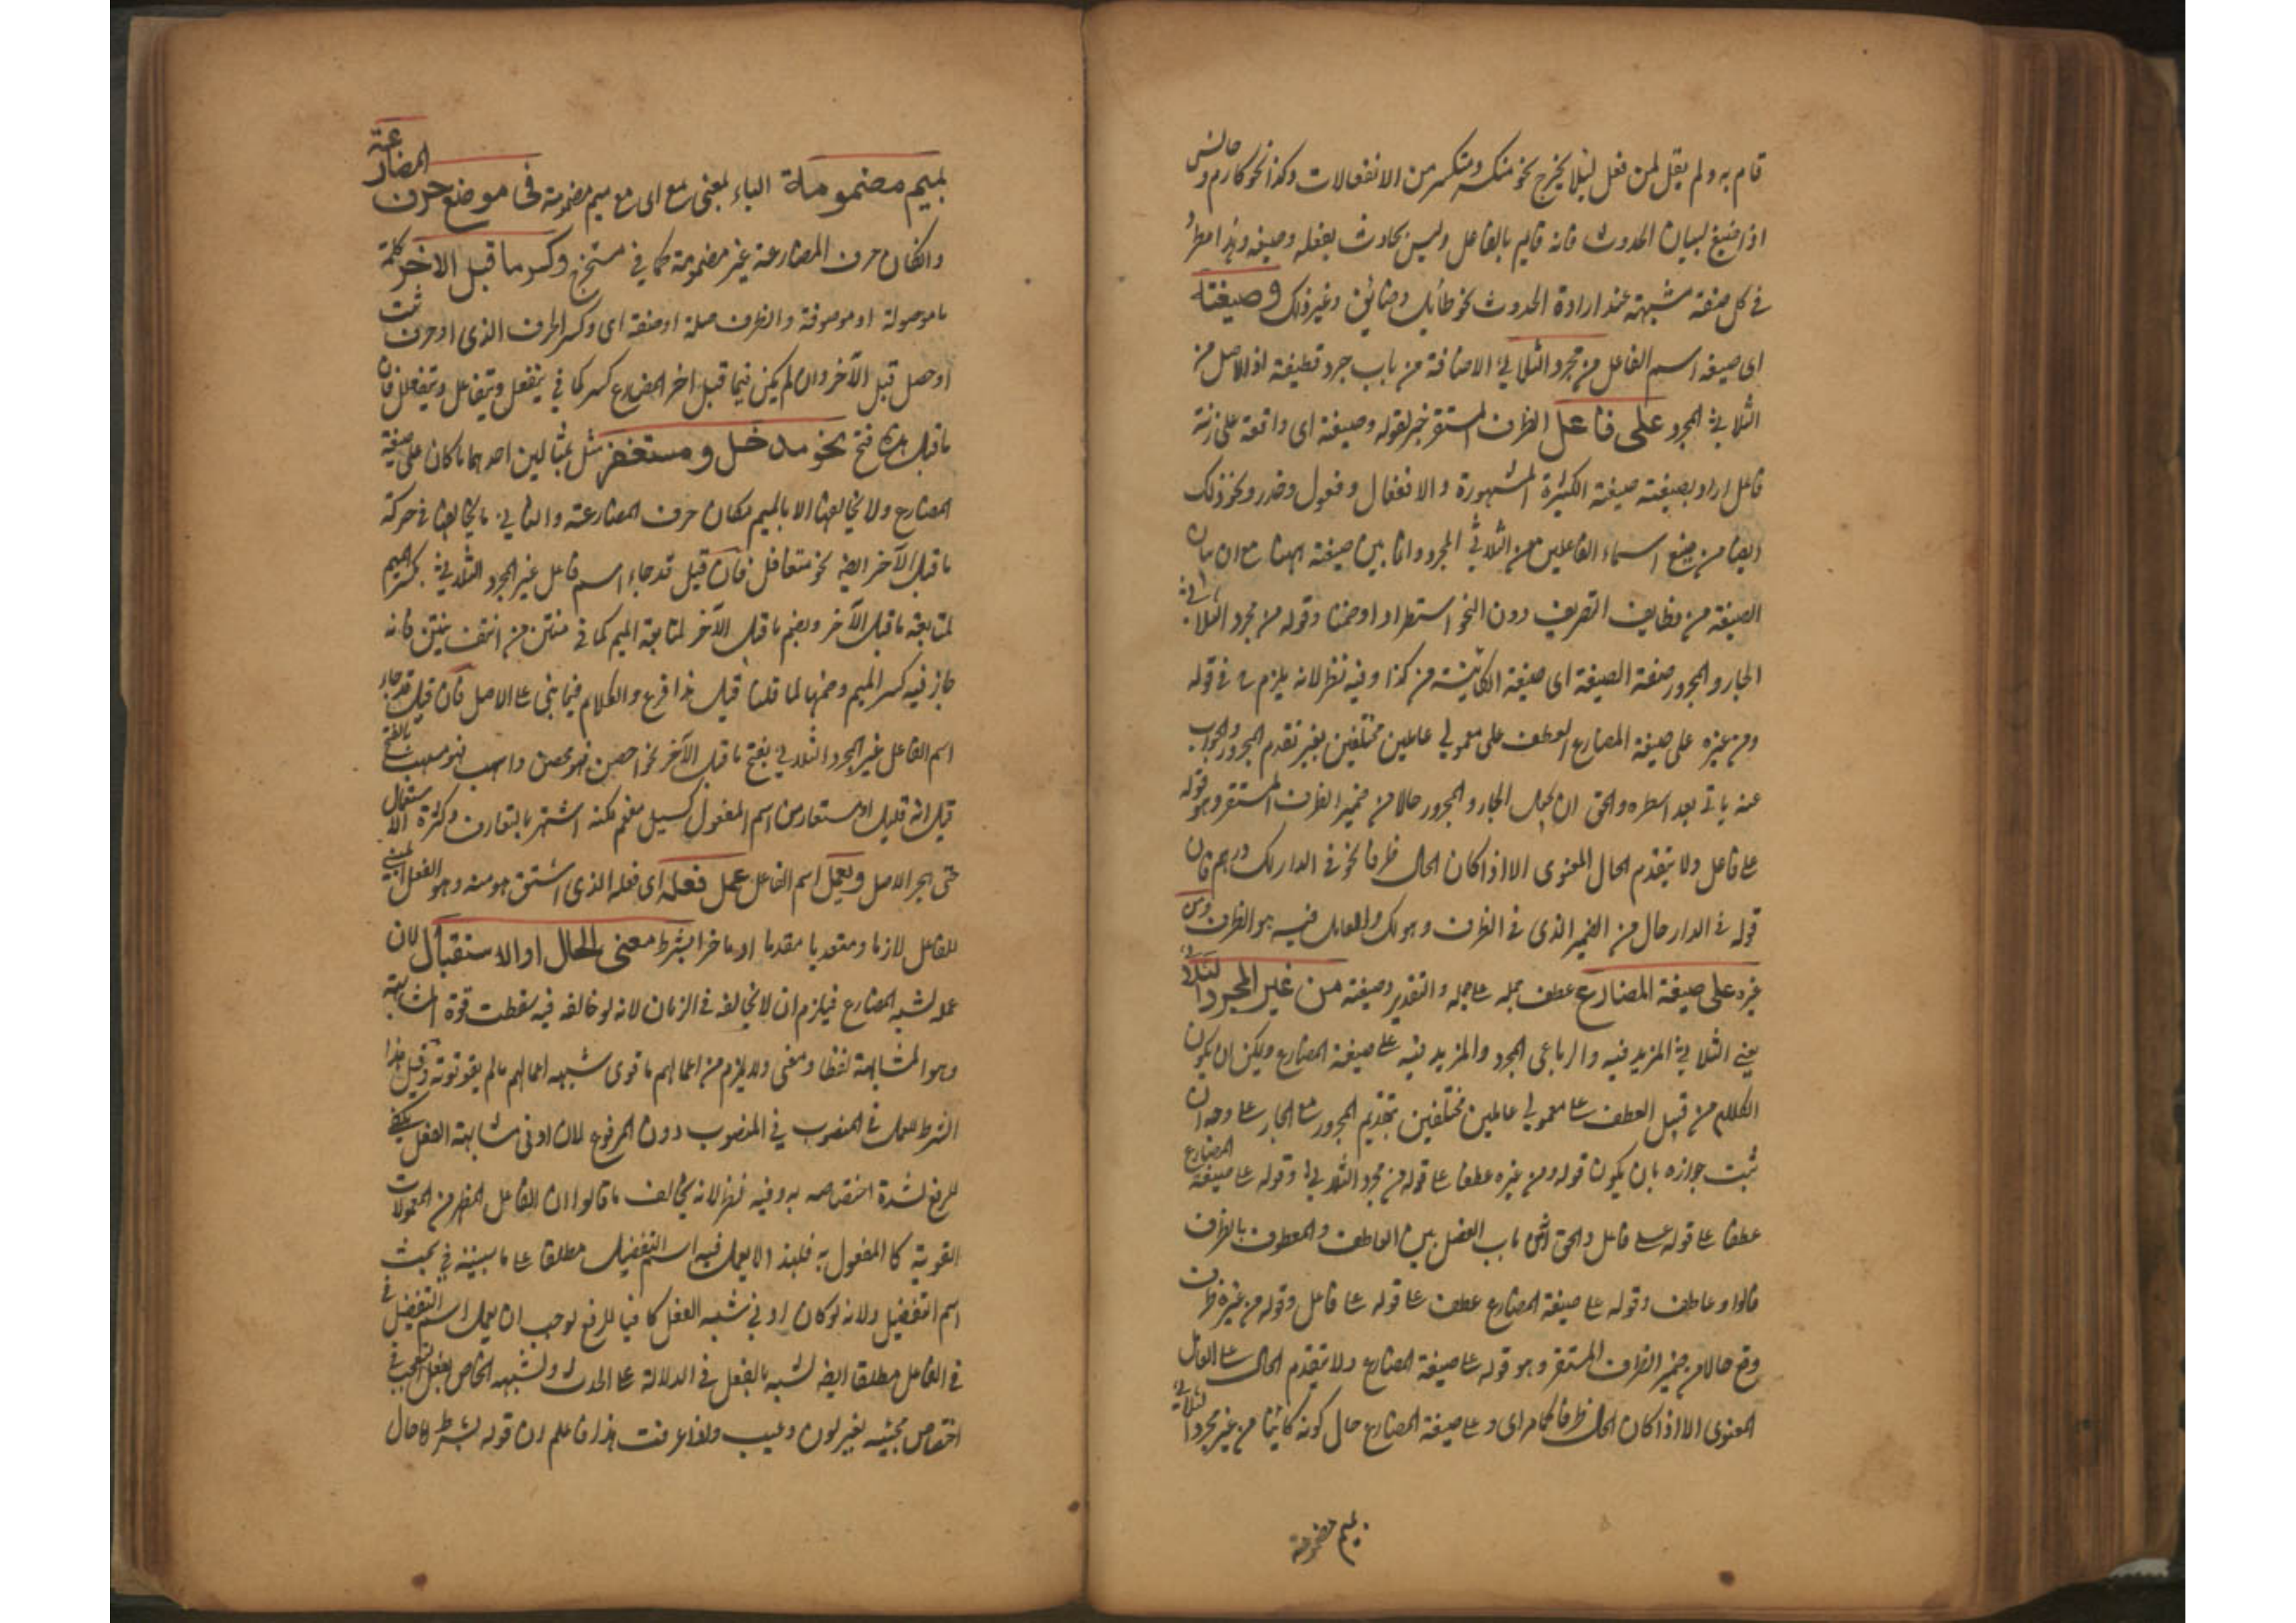 قام به ولم يقل لمن فعل ليلا يخرج نحو منكسر ومتكسر من الانفعالات وكذا نحو كارم وحانس
اذا صيغ لبيان الحدوث فانه قايم بالفاعل وليس بحادث بفعله وصيغه وهذا مطرد
في كل صفة مشبهة عند ارادة الحدوث نحو طائل وضائق وغير ذلك وصيغته
اى صيغة اسم الفاعل من مجرد الثلاثي الاضافة من باب جرد قطيفة اذ الاصل من
الثلاثي المجرد على فاعل الظرف المستقر خبر لقوله وصيغة اى واقعة على زنة
فاعل اراد بصيغته صيغة الكثيرة المشهورة والا فعال وفعول وحذر ونحو ذلك
ايضا من صيغ اسماء الفاعلين من الثلاثي المجرد وانما بين صيغة ههنا مع ان بيان
الصيغة من وظايف التصريف دون النحو استطرادا وضمنا وقوله من مجرد الثلاثي
الجار والمجرور صفة الصيغة اى صيغة الكائنة من كذا وفيه نظر لانه يلزم في قوله
ومن غيره على صيغة المضارع العطف على معمولي عاملين مختلفين بغير تقدم المجرور والجواب
عنه ياتي بعد اسطره والحق ان يجعل الجار والمجرور حالا من ضمير الظرف المستقر وهو قوله
على فاعل ولا يتقدم الحال المعنوى الا اذا كان الحال ظرفا نحو في الدار لك درهم فان
قوله في الدار حال من الضمير الذى في الظرف وهو لك والعامل فيه هو الظرف ومن
غيره على صيغة المضارع عطف جملة على جملة والتقدير وصيغته من غير المجرد الثلاثي
يعني الثلاثي المزيد فيه والرباعى المجرد والمزيد فيه على صيغة المضارع ويمكن ان يكون
الكلام من قبيل العطف على معمولي عاملين مختلفين بتقديم المجرور على الجار على وجه ان
ثبت جوازه بان يكون قوله ومن غيره عطفا على قوله من مجرد الثلاثي وقوله على صيغة المضارع
عطفا على قوله على فاعل والحق باب الفصل بين العاطف والمعطوف بالظرف
فالواو عاطف وقوله على صيغة المضارع عطف على قوله على فاعل وقوله من غيره ظرف
وقع حالا من ضمير الظرف المستقر وهو قوله على صيغة المضارع ولا يتقدم الحال على العامل
المعنوى الا اذا كان الحال ظرفا كما مر اى وعلى صيغة المضارع حال كونه كائنا من غير مجرد الثلاثي
بميم مضمومة
بميم مضمومة الباء بمعنى مع اى مع ميم مضمومة في موضع حرف المضارعة
وان كان حرف المضارعة غير مضمومة كما في مستخرج وكسر ما قبل الاخر كلمة
ما موصولة او موصوفة والظرف صلة او صفة اى وكسر الحرف الذى او حرف ثبت
او حصل قبل الآخر وان لم يكن فيما قبل اخر المضارع كسر كما في يتفعل ويتفاعل ويتفعلل فان
ما قبل فتح نحو مدخل ومستغفر مثل بمثالين احدهما ما كان على صيغة
المضارع ولا يخالفها الا بالميم مكان حرف المضارعة والثاني ما يخالفها في حركة
ما قبل الآخر ايضا نحو متغافل فان قيل قد جاء اسم فاعل غير المجرد الثلاثي بكسر الميم
لمتابعة ما قبل الآخر وبضم ما قبل الآخر لمتابعة الميم كما في منتن من انتن ينتن فانه
جاز فيه كسر الميم وضمها لما قلنا قيل هذا فرع والكلام فيما بنى على الاصل فان قيل قد جاء
اسم الفاعل غير المجرد الثلاثي بفتح ما قبل الآخر نحو احصن فهو محصن واسهب فهو مسهب بالفتح
قيل انه قليل او مستعار من اسم المفعول كسيل مفعم لكنه اشتهر بالتعارف وكثرة الاستعمال
حتى هجر الاصل ويعمل اسم الفاعل عمل فعله اى فعله الذى اشتق هو منه وهو الفعل المبني
للفاعل لازما ومتعديا مقدما او ماخرا بشرط معنى الحال او الاستقبال لان
عمله لشبه المضارع فيلزم ان لا يخالفه في الزمان لانه لو خالفه فيه سقطت قوة المشابهة
وهو المشابهة لفظا ومعنى ولا يلزم من اعمالهم ما قوى شبهه اعمالهم ما لم يقو قوته وقيل هذا
الشرط للعمل في المنصوب دون المرفوع لان ادنى مشابهة الفعل يكفي
للرفع لشدة اختصاصه به وفيه نظر لانه يخالف ما قالوا ان الفاعل المظهر من المعمولات
القوية كالمفعول به فلهذا لا يعمل فيه اسم التفضيل مطلقا على ما سيبينه في بحث
اسم التفضيل ولانه لو كان ادنى شبه الفعل كافيا للرفع لوجب ان يعمل اسم التفضيل في
في الفاعل مطلقا ايضا لشبهه بالفعل في الدلالة على الحدث ولشبهه الخاص بفعل التعجب في
اختصاص مجيئه بغير لون وعيب ولما عرفت هذا فاعلم ان قوله بشرط حال